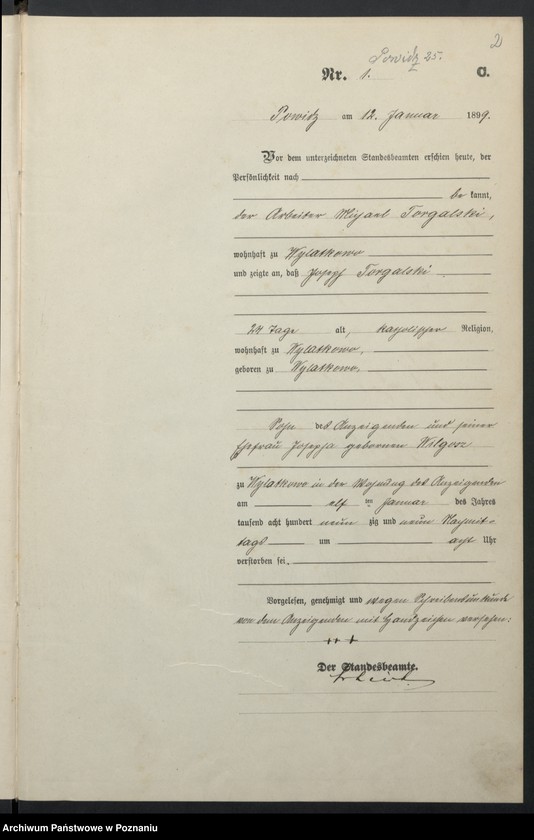 2
Powidz 25.
Nr. 1. C.
Powidz am 12. Januar 1899.
Vor dem unterzeichneten Standesbeamten erschien heute, der
Persönlichkeit nach
be kannt,
der Arbeiter Michael Torgalski,
wohnhaft zu Wylatkowo
und zeigte an, daß Joseph Torgalski
24 Tage alt, katholischer Religion,
wohnhaft zu Wylatkowo,
geboren zu Wylatkowo,
Sohn des Anzeigenden und seiner
Ehefrau Josepha geborenen Wilgosz
zu Wylatkowo in der Wohnung des Anzeigenden
am elf ten Januar des Jahres
tausend acht hundert neun zig und neun Nachmit-
tags um acht Uhr
verstorben sei.
Vorgelesen, genehmigt und wegen Schreibensunkunde
von dem Anzeigenden mit Handzeichen versehen:
+++
Der Standesbeamte.
Archiwum Państwowe w Poznaniu